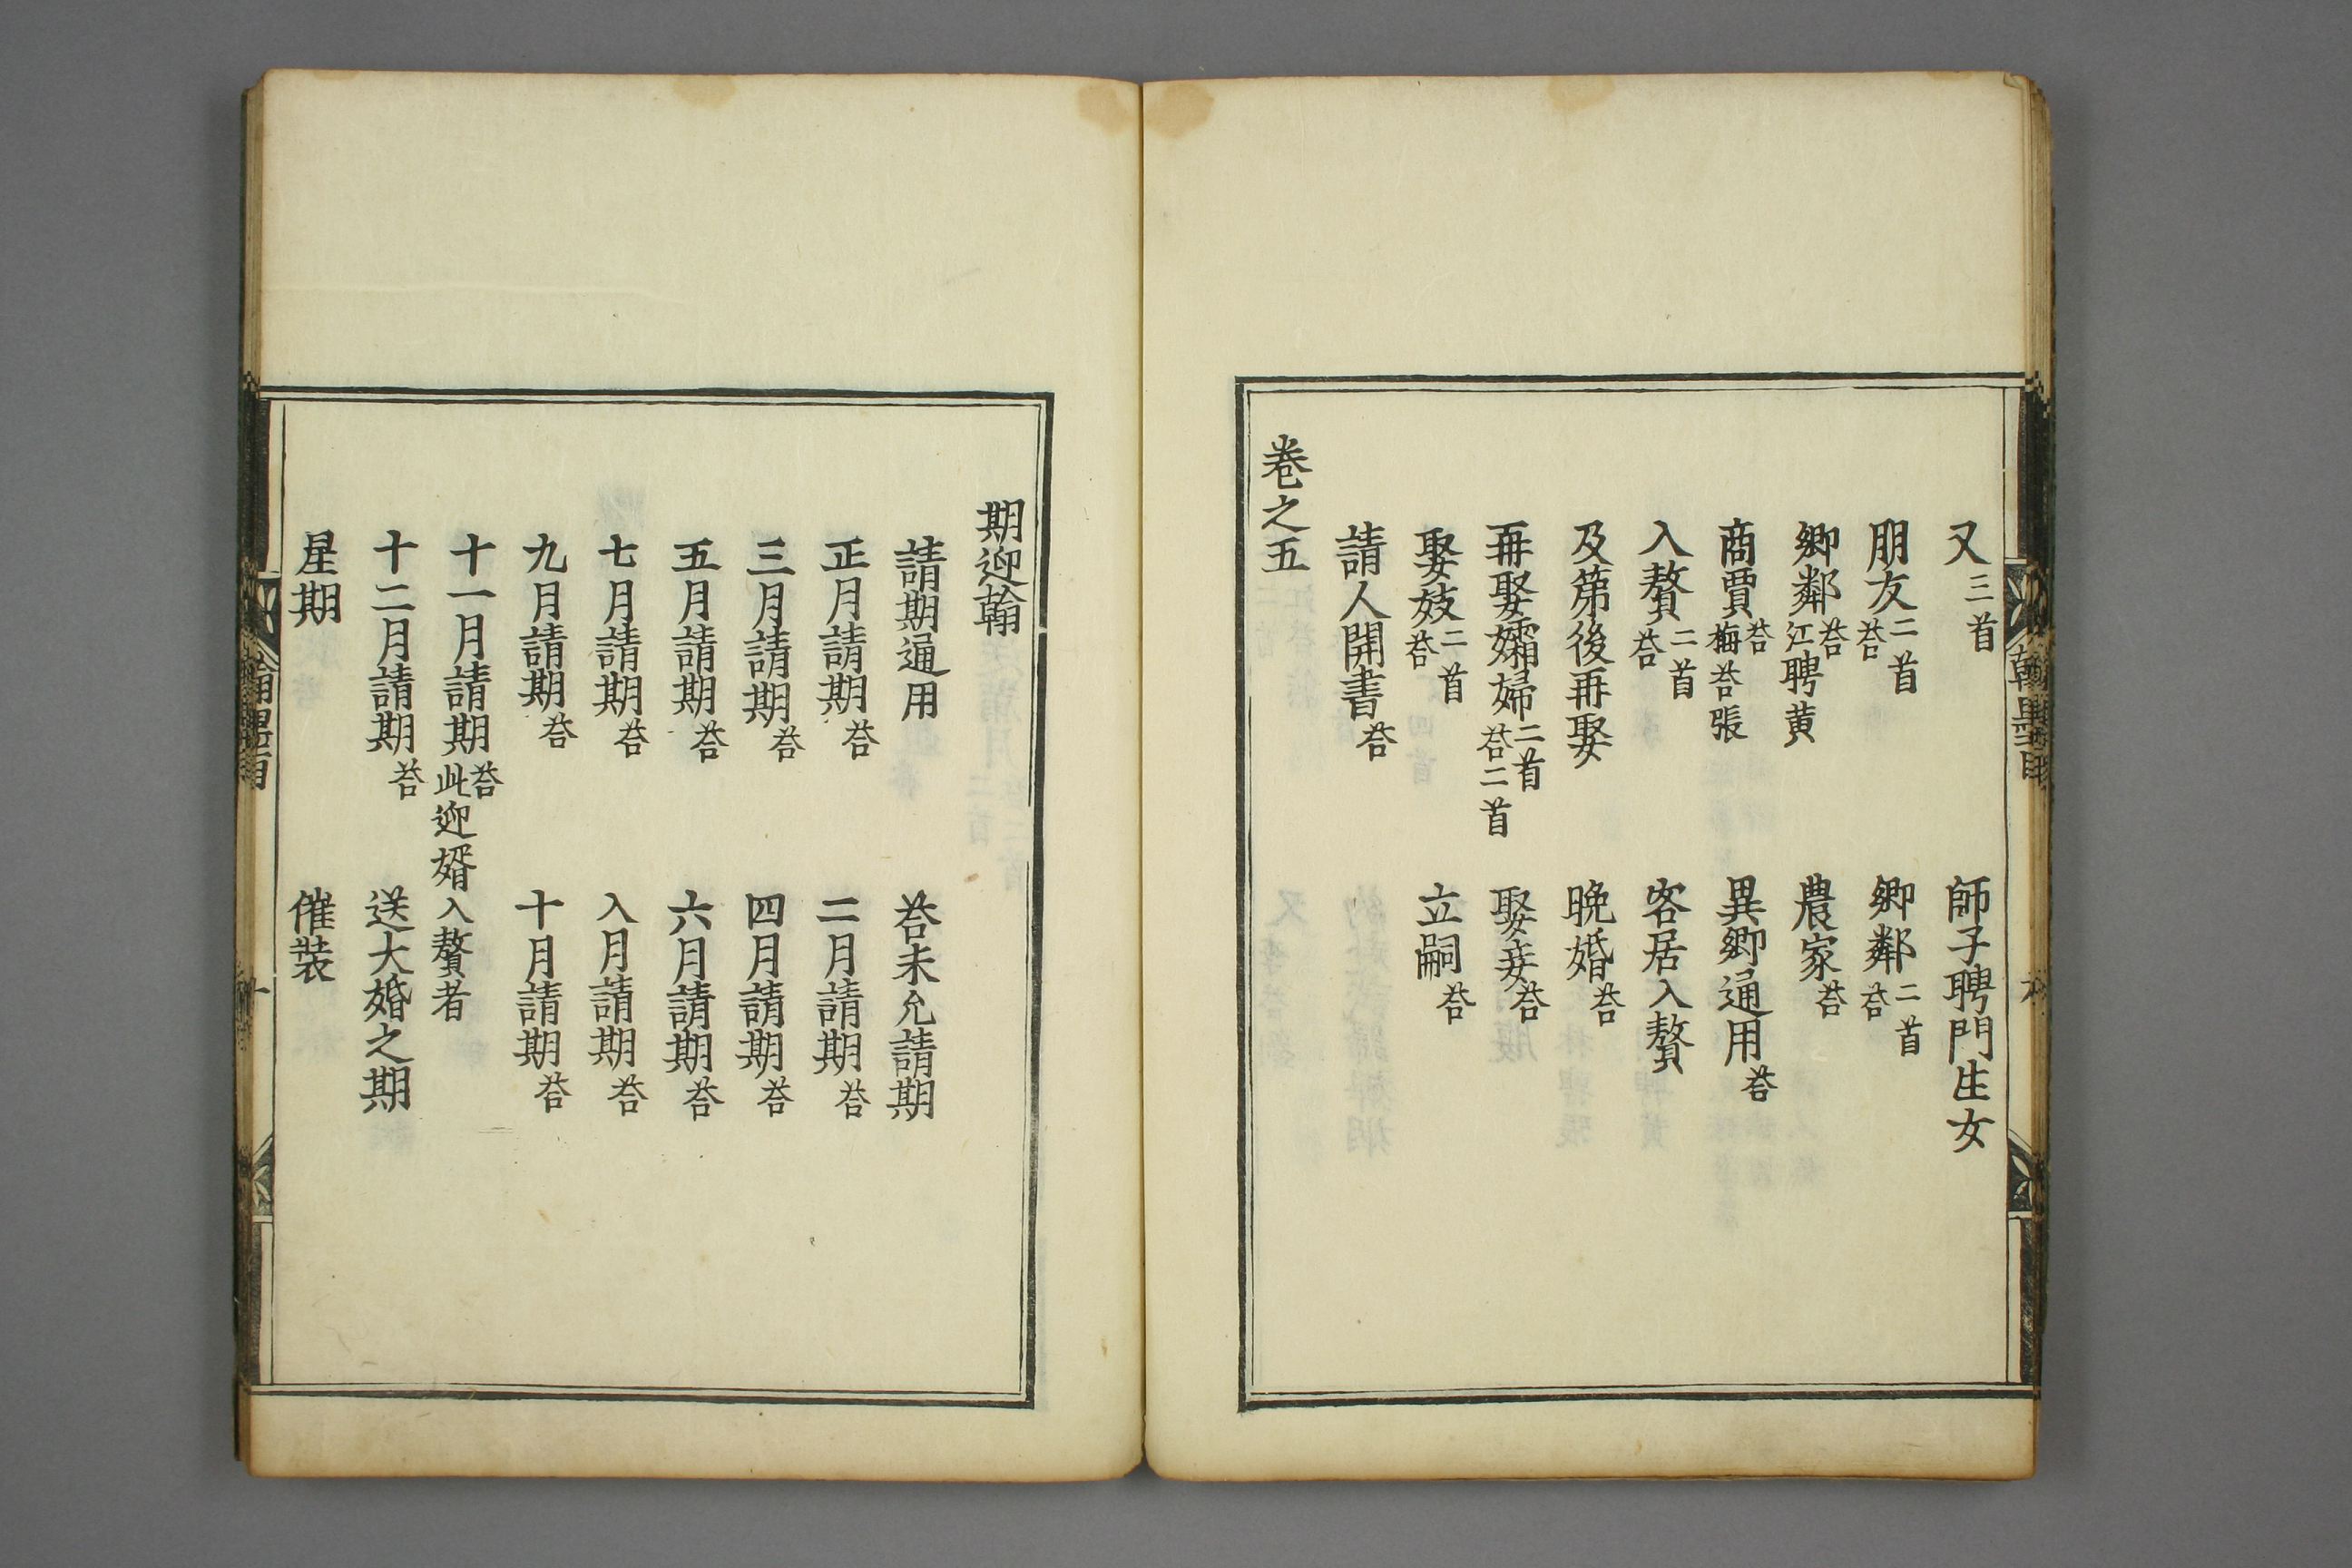 又三首　師子聘門生女
朋友二首荅　鄉鄰二首荅
鄉鄰荅江聘黃　農家荅
商賈荅梅荅張　異鄉通用荅
入贅二首荅　客居入贅
及第後再娶　晚婚荅
再娶孀婦二首荅二首　娶妾荅
娶妓二首荅　立嗣荅
請人開書荅
卷之五
期迎翰
請期通用　荅未允請期
正月請期荅　二月請期荅
三月請期荅　四月請期荅
五月請期荅　六月請期荅
七月請期荅　八月請期荅
九月請期荅　十月請期荅
十一月請期荅此迎婿入贅者
十二月請期荅　送大婚之期
星期　催裝